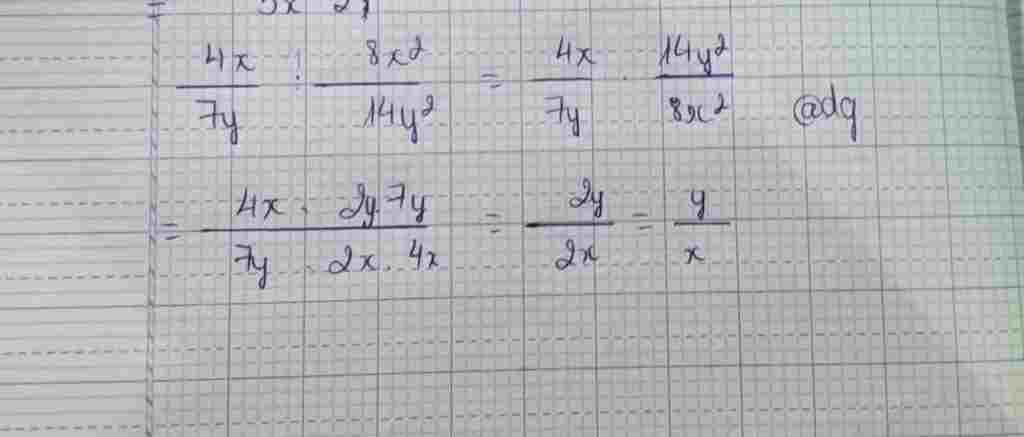 = 5x 2y
4x/7y : 8x²/14y² = 4x/7y . 14y²/8x² @dg
= 4x . 2y.7y/7y . 2x . 4x = 2y/2x = y/x